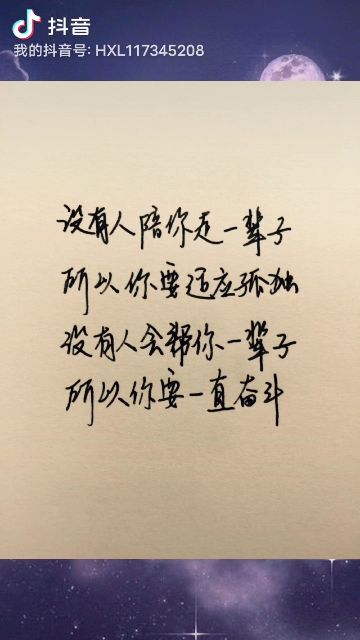 抖音
我的抖音号: HXL117345208
没有人陪你走一辈子
所以你要适应孤独
没有人会帮你一辈子
所以你要一直奋斗